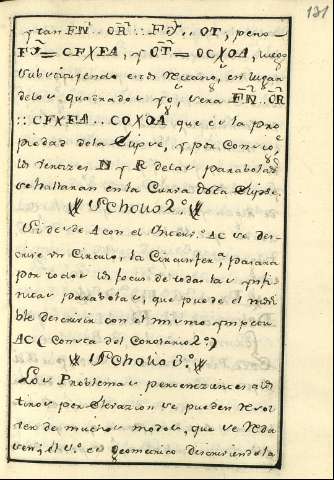 131
y tan FN̄ .. OR̄ :: FJ̄ .. OT, pero
FJ̄ = CFXFA, y OT̄ = OCXOA, luego
en lugar
de los quadrados y se, sera FN̄ .. OR̄
:: CFXFA .. COXOA que es la pro
piedad de la Elipse, y por Conseq.ª
los N y R de las parabolas
se hallaran en la Curva de la Elipse.
Scholio 2.º
Si desde A con el AC se des-
crive un Circulo, la Circunfer.ª pasara
por todos los focus de todas las ynfi-
nitas parabolas, que puede el
ble descrivir con el mismo ympetu
AC (Conversa del Corolario 2.º)
Scholio 3.º
Los Problemas pertenecientes a los
tiros por Elevazion se pueden resol-
ver de muchos modos, que se redu
cen; el 1.º es geometrico descriviendo la